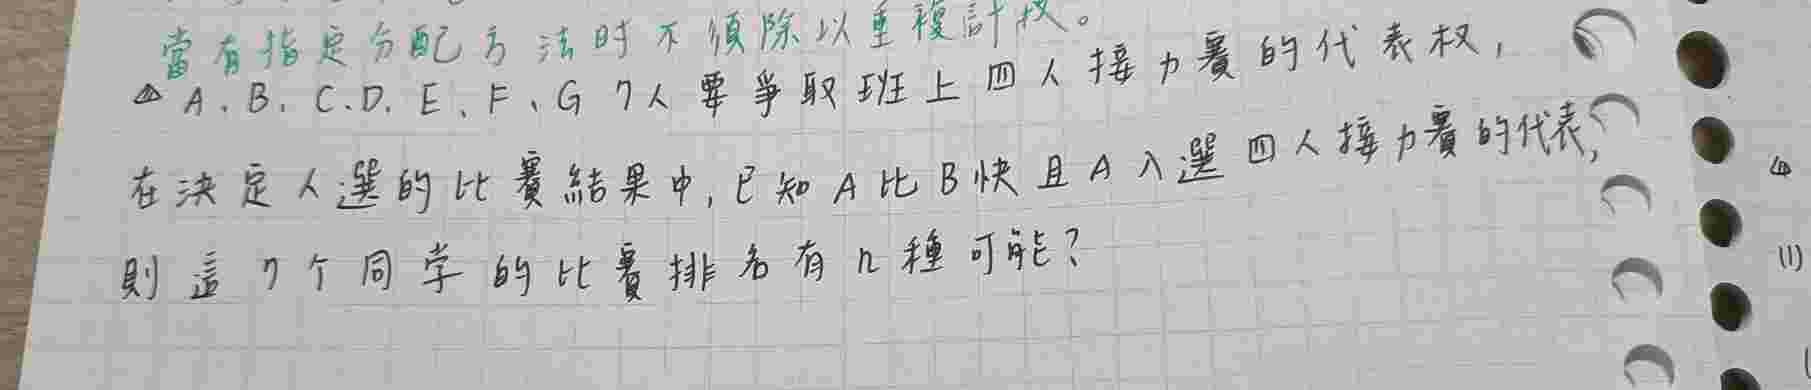 當有指定分配方法時不須除以重複計权。
A、B、C、D、E、F、G 7人要爭取班上四人接力賽的代表权,
在決定人選的比賽結果中,已知A比B快且A入選四人接力賽的代表,
則這7个同学的比賽排名有几種可能?
(1)